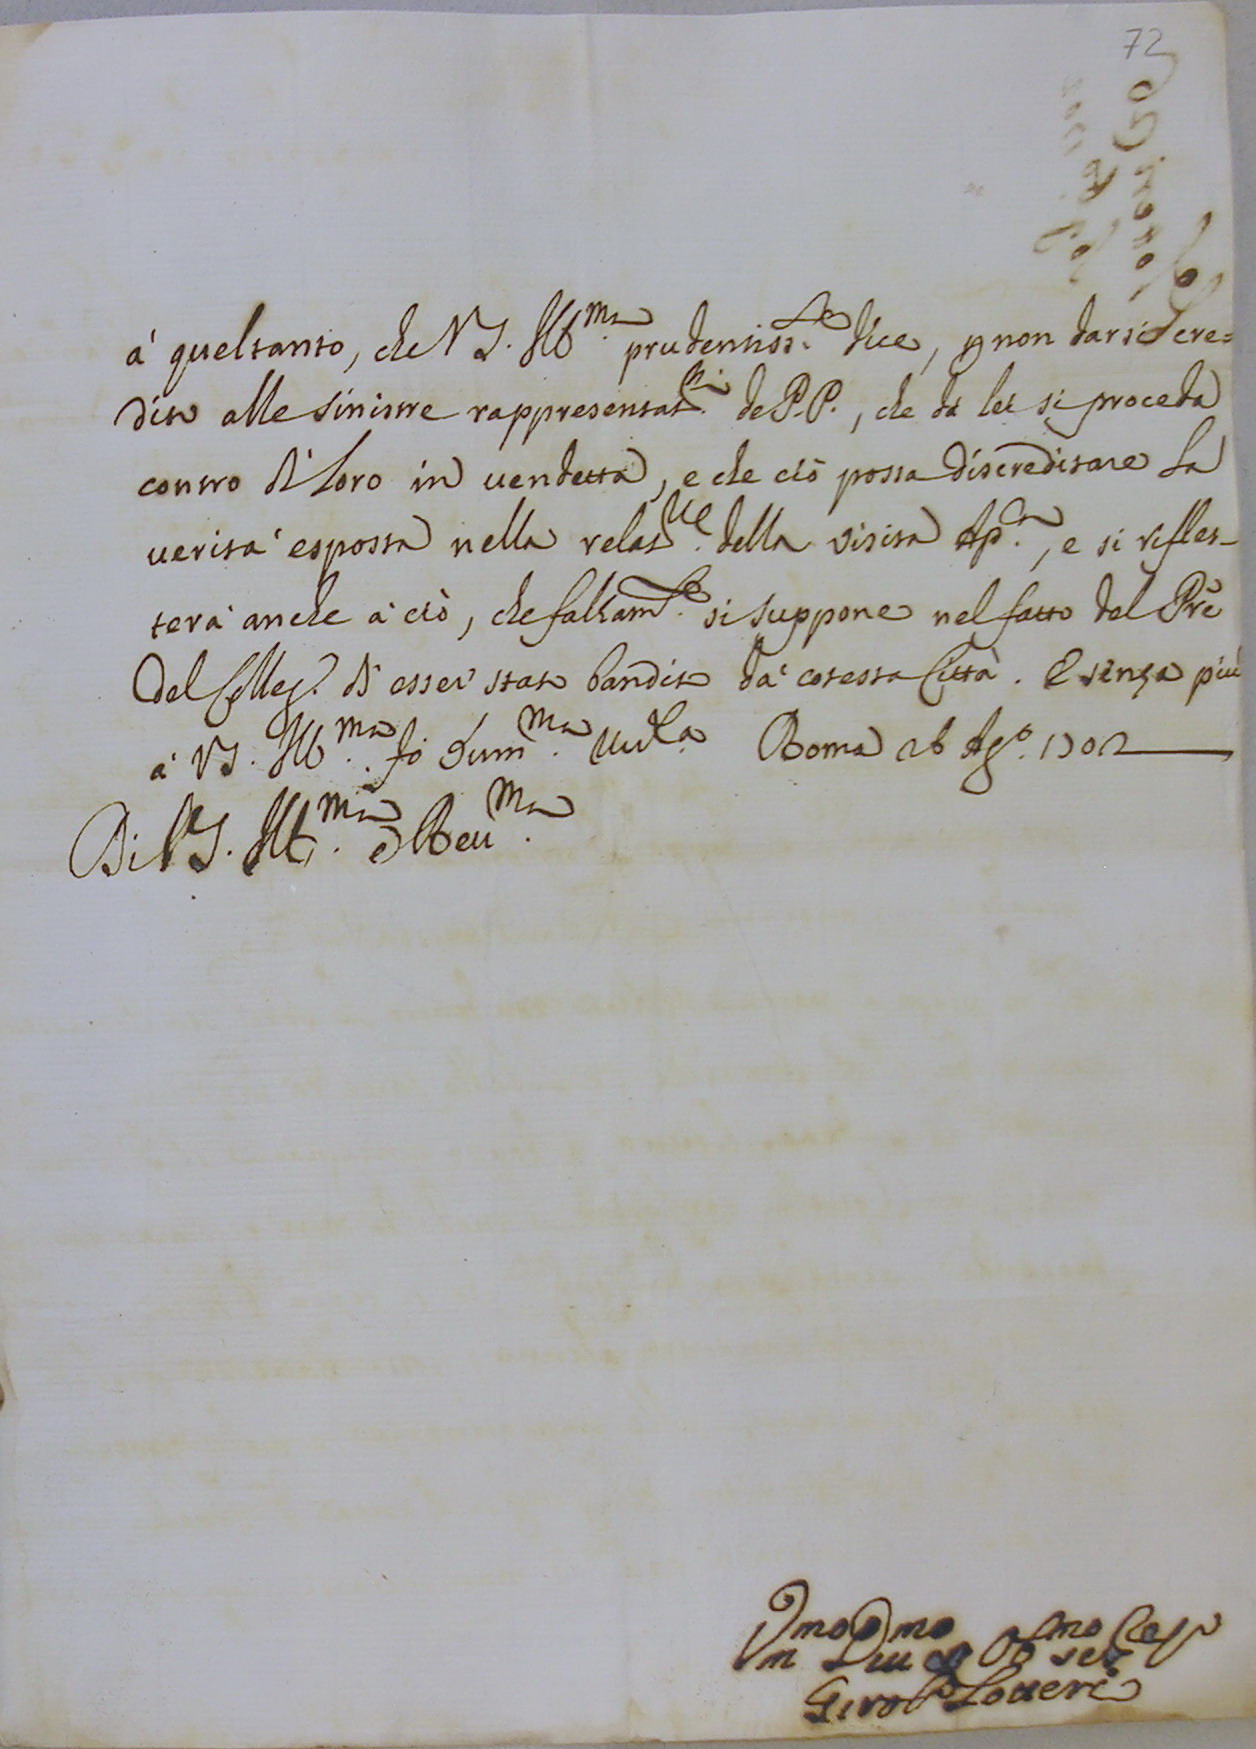 72
à quel tanto, che V.S. Ill.ma prudentiss.te dice, p non darsi cre=
dito alle sinistre rappresentat.ni de P.P., che da lei si proceda
contro di loro in vendetta, e che ciò possa discreditare la
verità esposta nella relat.ne della visita Ap.ca, e si riflet-
terà anche à ciò, che falsam.te si suppone nel fatto del Prē
del Colleg.o di esser stato bandito da cotesta Città. E senza più
à V.S. Ill.ma fò hum.ma riv.za Roma 26 Ag.o 1702
Di V.S. Ill.ma e Reu.ma
Um.mo Diu.mo et Obl.mo Ser
Girol.o Lotteri